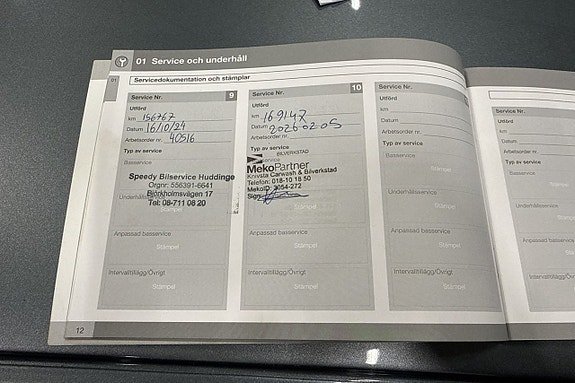 01 Service och underhåll
01
Servicedokumentation och stämplar
Service Nr. 9
Utförd
km 156767
Datum 16/10/24
Arbetsorder nr. 40516
Typ av service
Basservice
Speedy Bilservice Huddinge
Orgnr: 556391-6641
Björkholmsvägen 17
Tel: 08-711 08 20
Underhållsservice
Stämpel
Anpassad basservice
Stämpel
Intervalltillägg/Övrigt
Stämpel
Service Nr. 10
Utförd
km 169147
Datum 2026 02 05
Arbetsorder nr.
Typ av service
BILVERKSTAD
MekoPartner
Knivsta Carwash & Bilverkstad
Telefon: 018-10 18 50
MekoID: 3054-272
Sign
Stämpel
Anpassad basservice
Stämpel
Intervalltillägg/Övrigt
Stämpel
Service Nr.
Utförd
km
Datum
Arbetsorder nr.
Typ av service
Basservice
Stämpel
Underhållsservice
Stämpel
Anpassad basservice
Stämpel
Intervalltillägg/Övrigt
Stämpel
Service Nr.
Utförd
km
Datum
Arbetsorder nr.
Typ av service
Basservice
Underhållsservice
Anpassad basservice
Intervalltillägg/Övrigt
12